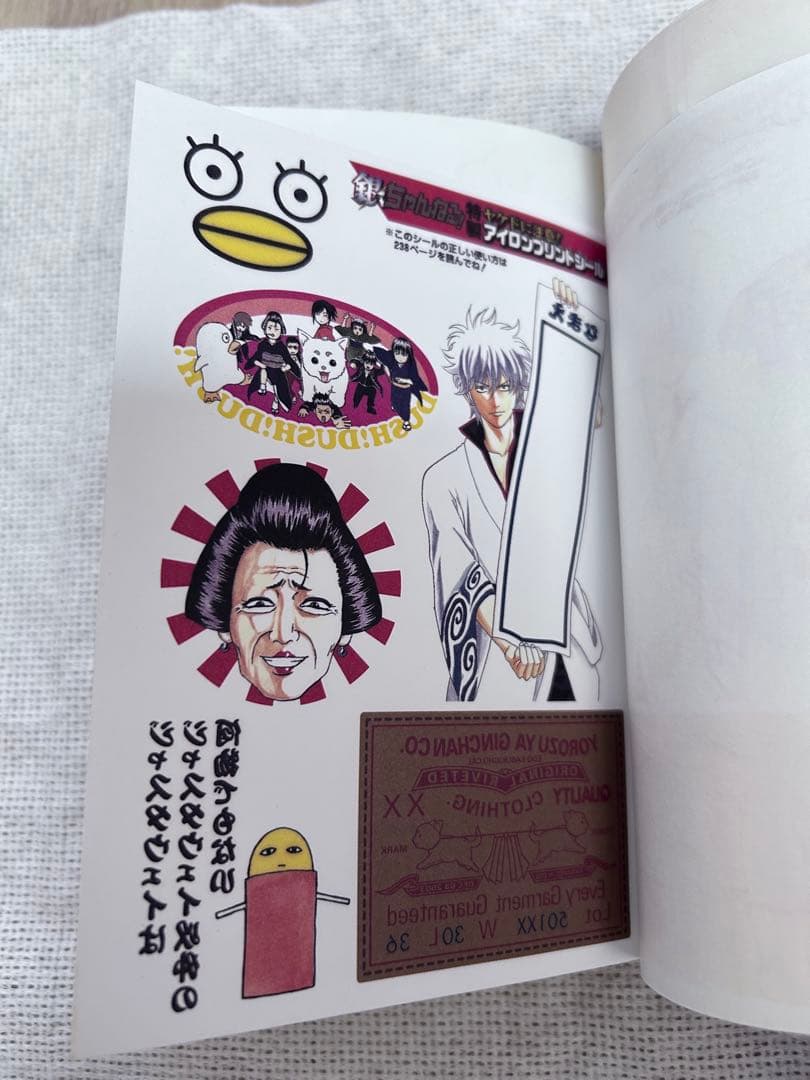 銀ちゃんねる!
特製
ヤケドに注意!
アイロンプリントシール
※このシールの正しい使い方は
238ページを読んでね!
DUSH!DUSH!DUSH!
ジャスタウェイは
ジャスタウェイ以外の
何物でもない
YOROZUYA GINCHAN CO.
ORIGINAL RIVETED
QUALITY CLOTHING.
XX
MARK
Every Garment Guaranteed
Lot 501XX W 30 L 36